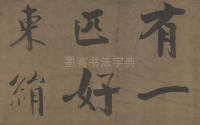 有一
匹好
東絹
墨客书法字典